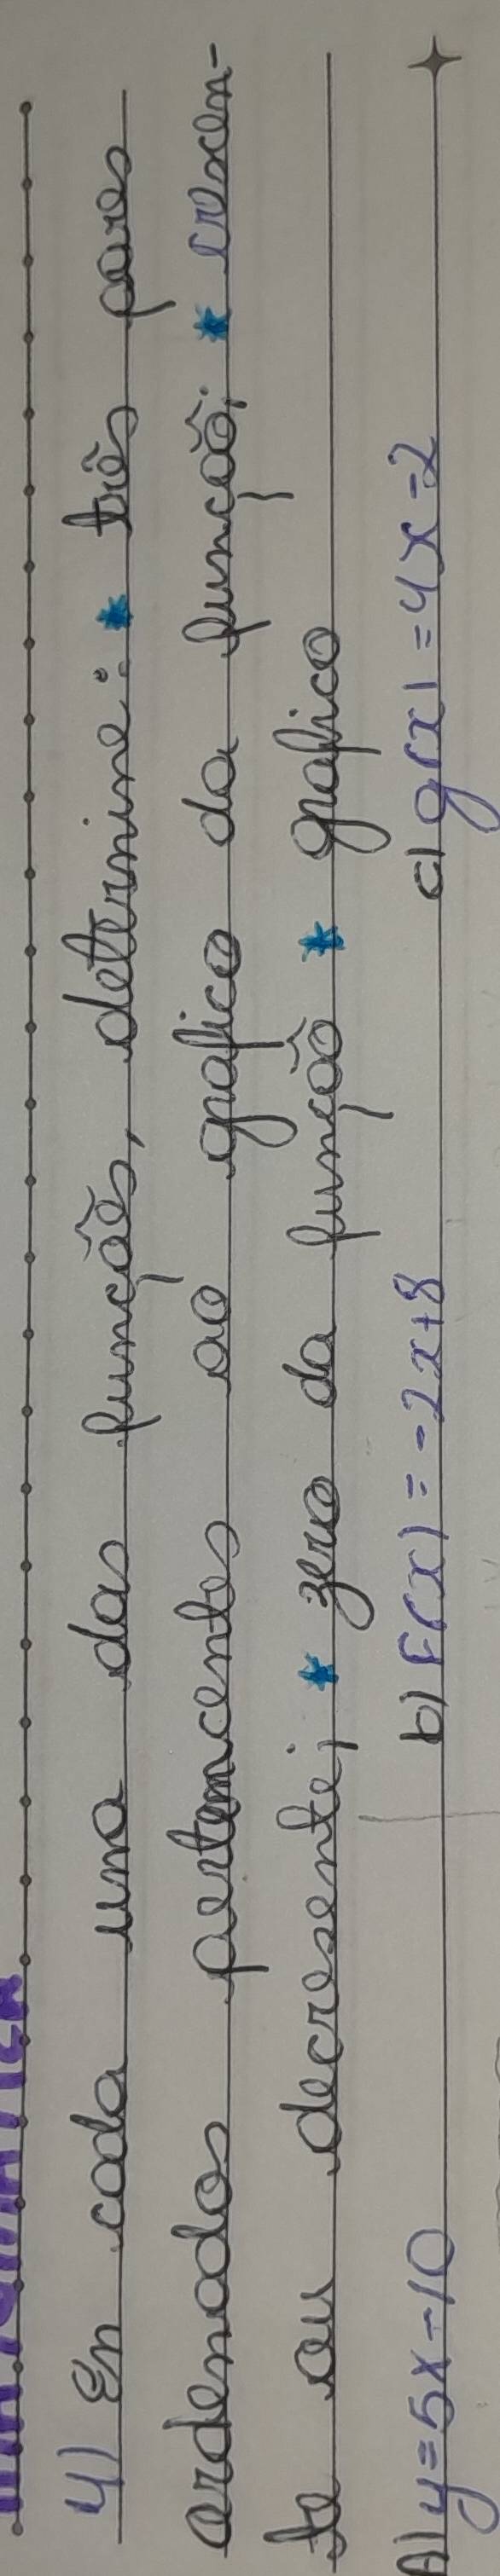 4) En cada uma das funções, determine: * três pares
ordenados pertencentes ao grafico da função; * crescen-
te ou decresente; * zero da função * grafico
A) y=5x-10 b) F(x) = -2x+8 c) g(x) = 4x-2